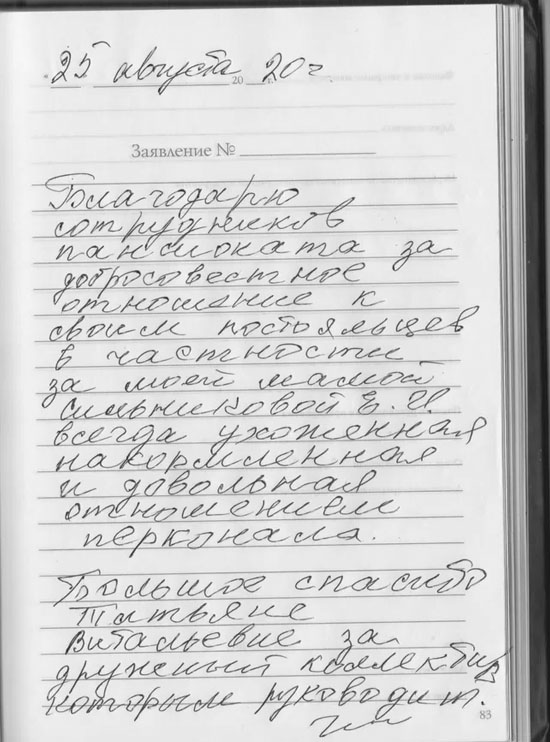 25 августа 20 20 г.
Заявление №
Благодарю
сотрудников
пансионата за
добросовестное
отношение к
своим постояльцев
в частности
за моей мамой
Сильниковой Е. И.
всегда ухоженная
накормленная
и довольная
отношением
персонала.
Большое спасибо
Татьяне
Витальевне за
дружный коллектив
которым руководит.
83